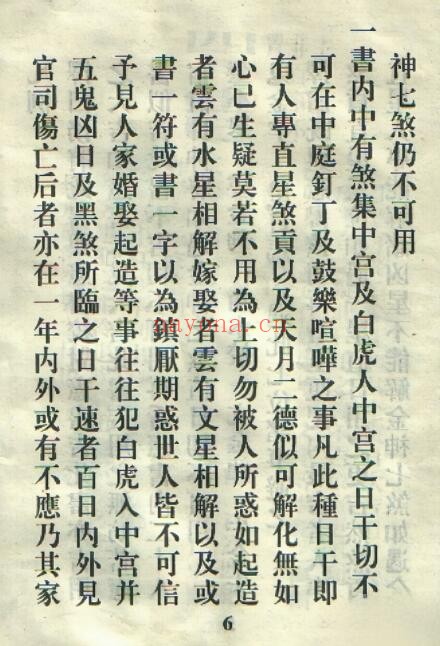 神七煞仍不可用
一書內中有煞集中宫及白虎人中宫之日干切不
可在中庭釘丁及鼓樂喧嘩之事凡此種日干即
有人專直星煞貢以及天月二德似可解化無如
心已生疑莫若不用為上切勿被人所惑如起造
者雲有水星相解嫁娶者雲有文星相解以及或
書一符或書一字以為鎮厭期惑世人皆不可信
予見人家婚娶起造等事往往犯白虎入中宫并
五鬼凶日及黑煞所臨之日干速者百日內外見
官司傷亡后者亦在一年內外或有不應乃其家
6